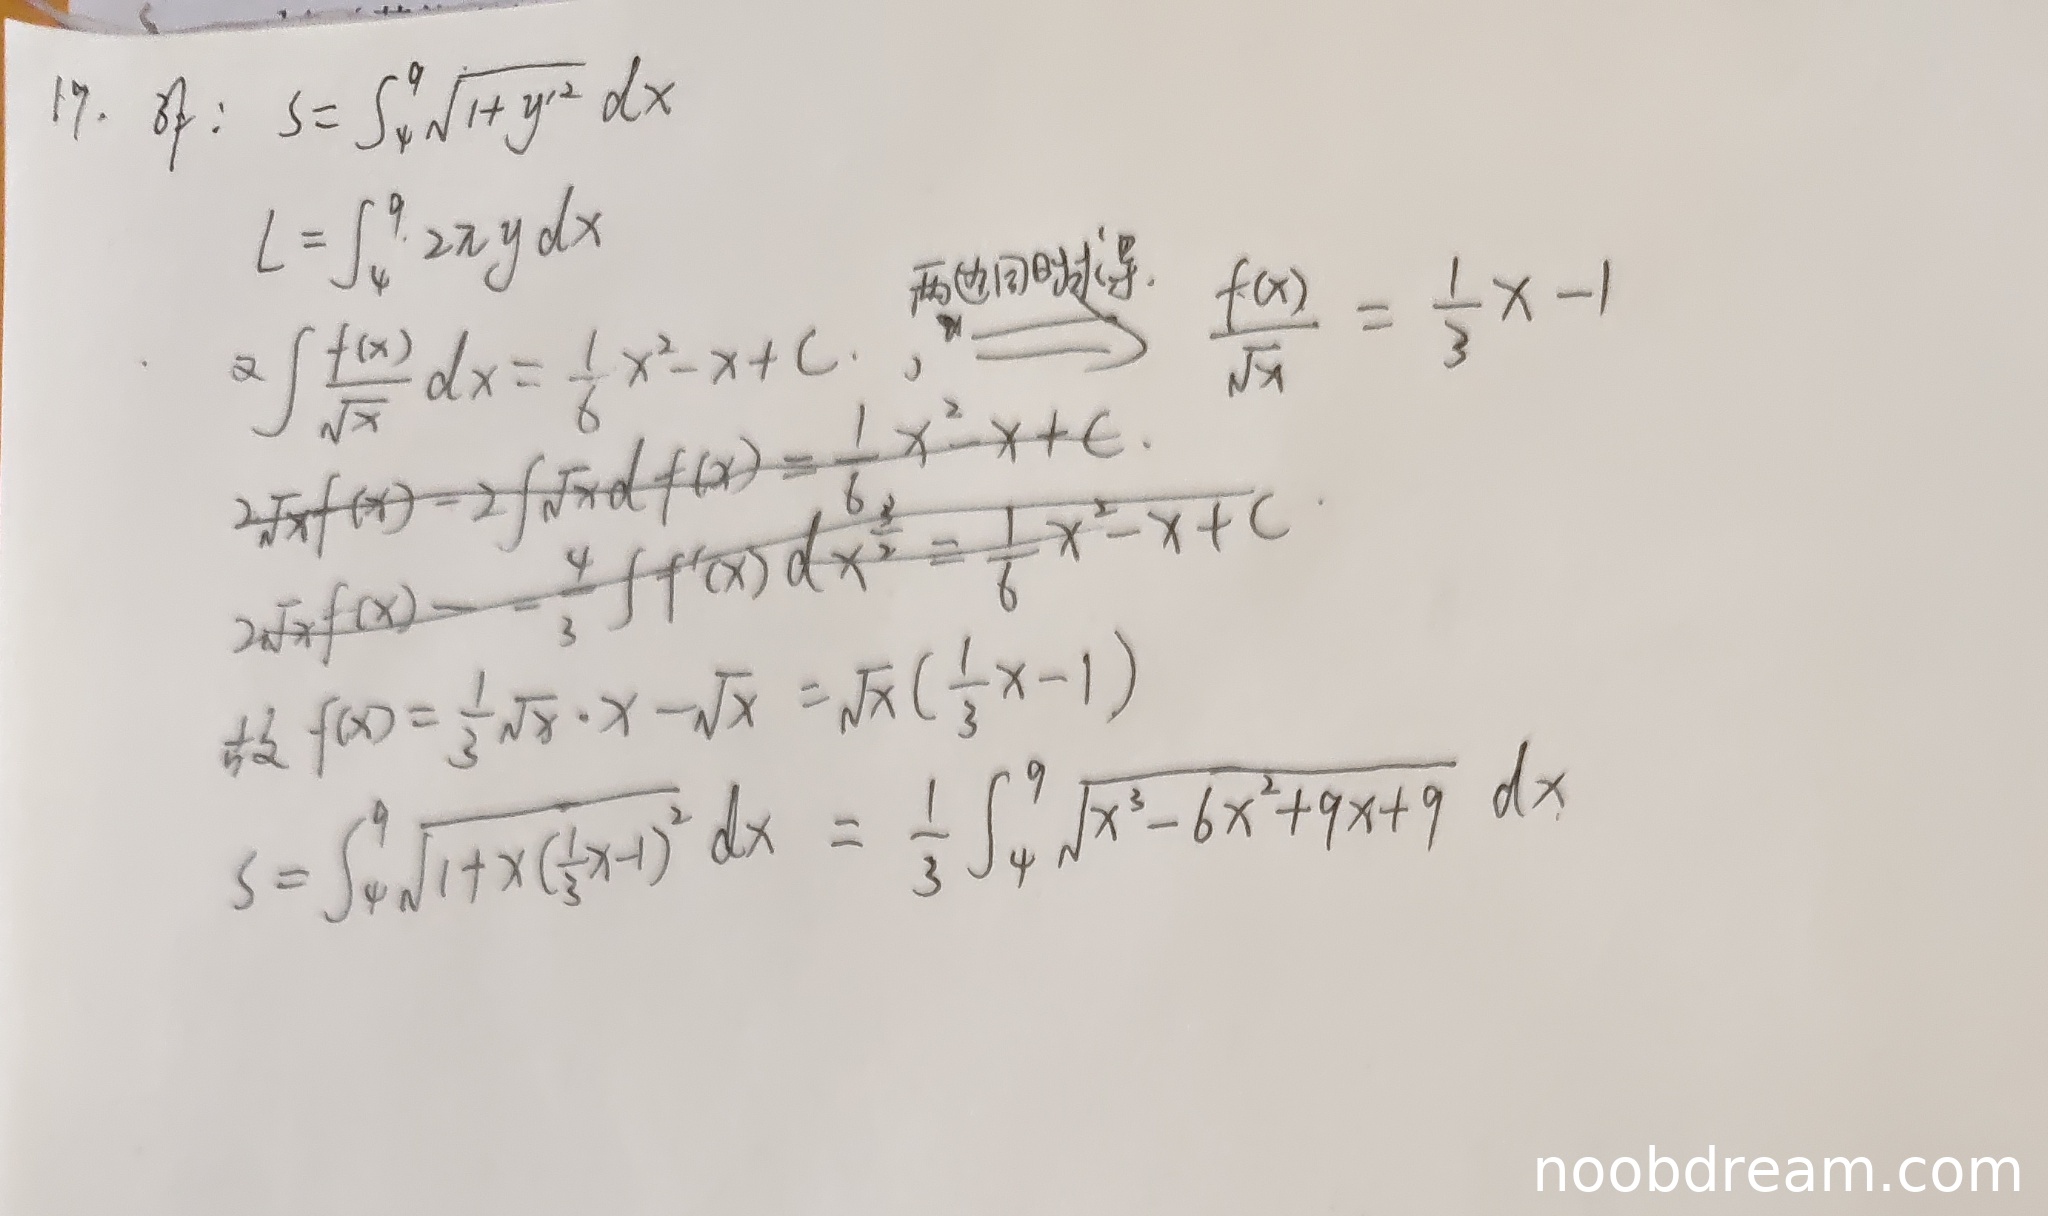 17. 解: S = ∫₄⁹ √(1+y'²) dx
L = ∫₄⁹ 2πy dx
2∫ f(x)/√x dx = 1/6 x² - x + C. , 两边同时求导. ⟹ f(x)/√x = 1/3 x - 1
2√x f(x) - 2∫√x d f(x) = 1/6 x² - x + C.
2√x f(x) - - 4/3 ∫ f'(x) dx^(3/2) = 1/6 x² - x + C
故 f(x) = 1/3 √x · x - √x = √x (1/3 x - 1)
S = ∫₄⁹ √(1+x(1/3 x-1)²) dx = 1/3 ∫₄⁹ √(x³-6x²+9x+9) dx
noobdream.com